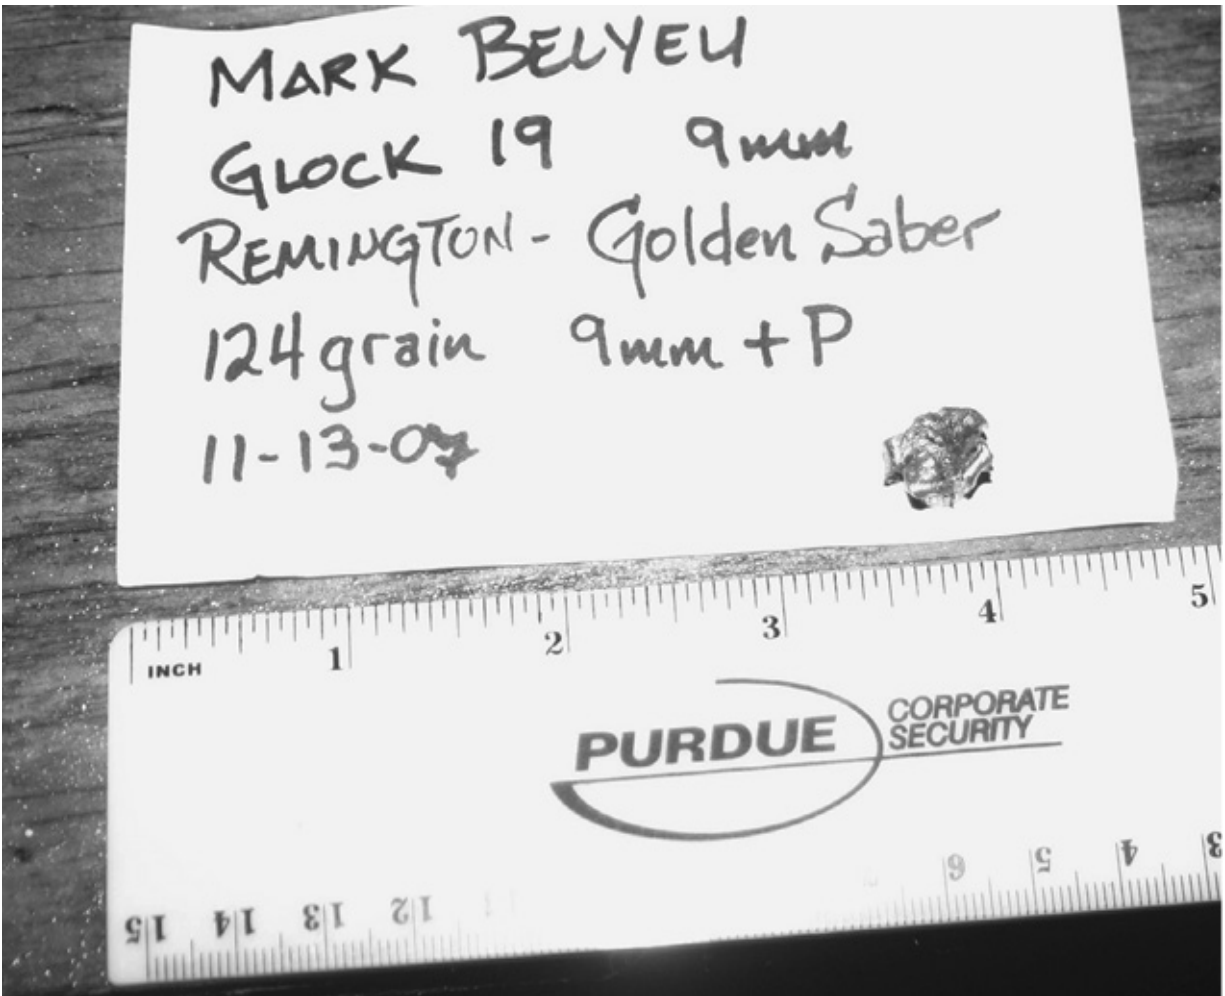 MARK BELYEU
GLOCK 19 9mm
REMINGTON - Golden Saber
124 grain 9mm + P
11-13-07
1 2 3 4 5
INCH
PURDUE CORPORATE
SECURITY
15 14 13 12 6 5 4 3